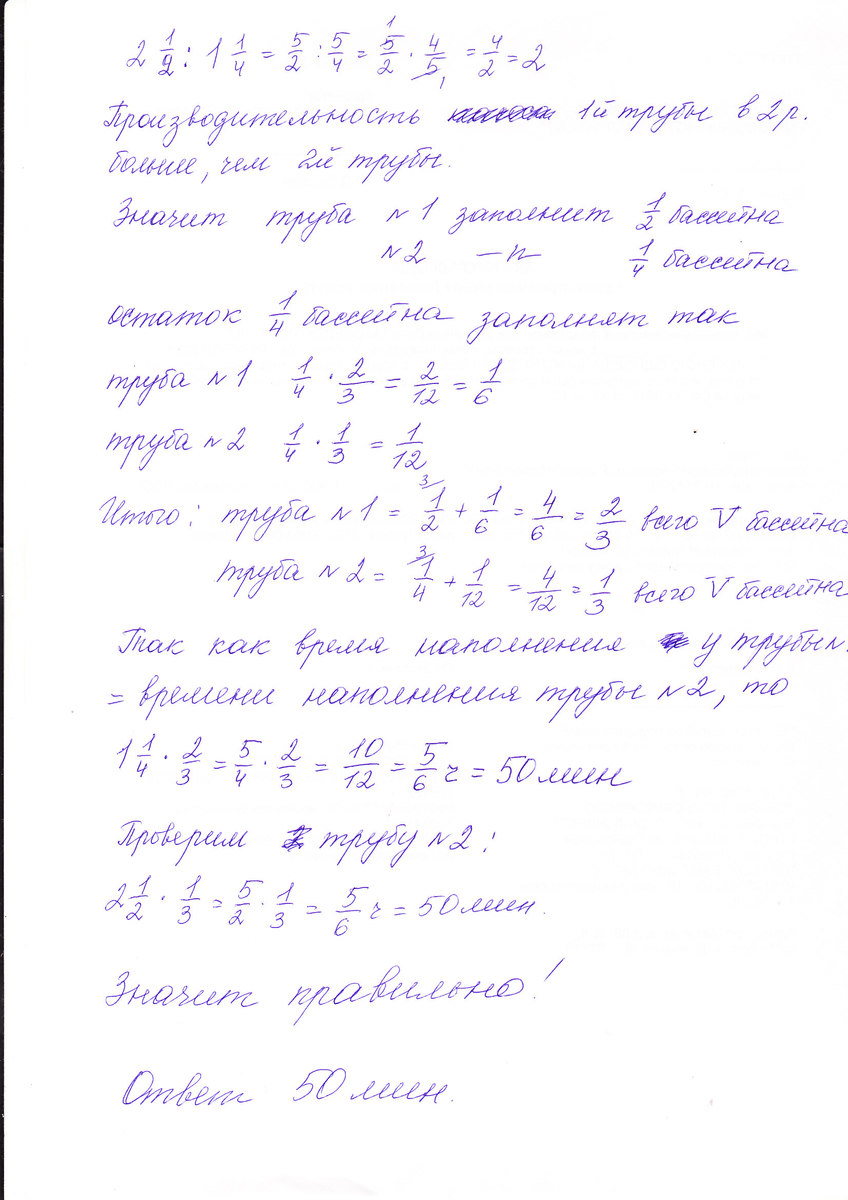 2 1/2 : 1 1/4 = 5/2 : 5/4 = 5/2 · 4/5 = 4/2 = 2
Производительность 1й трубы в 2 р.
больше, чем 2й трубы.
Значит труба №1 заполнит 1/2 бассейна
№2 —"— 1/4 бассейна
остаток 1/4 бассейна заполнят так
труба №1 1/4 · 2/3 = 2/12 = 1/6
труба №2 1/4 · 1/3 = 1/12
Итого: труба №1 = 3/ 1/2 + 1/6 = 4/6 = 2/3 всего V бассейна
труба №2 = 3/ 1/4 + 1/12 = 4/12 = 1/3 всего V бассейна
Так как время наполнения у трубы №
= времени наполнения трубы №2, то
1 1/4 · 2/3 = 5/4 · 2/3 = 10/12 = 5/6 ч = 50 мин
Проверим трубу №2:
2 1/2 · 1/3 = 5/2 · 1/3 = 5/6 ч = 50 мин.
Значит правильно!
Ответ 50 мин.